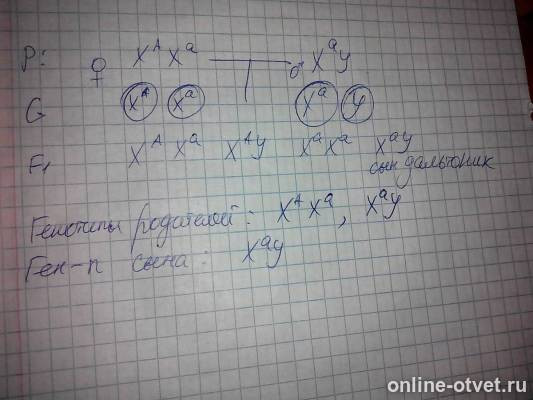 P: ♀ X^A X^a ♂ X^a y
G X^A X^a X^a y
F₁ X^A X^a X^A y X^a X^a X^a y
сын дальтоник
Генотипы родителей: X^A X^a, X^a y
Ген-п сына: X^a y
online-otvet.ru